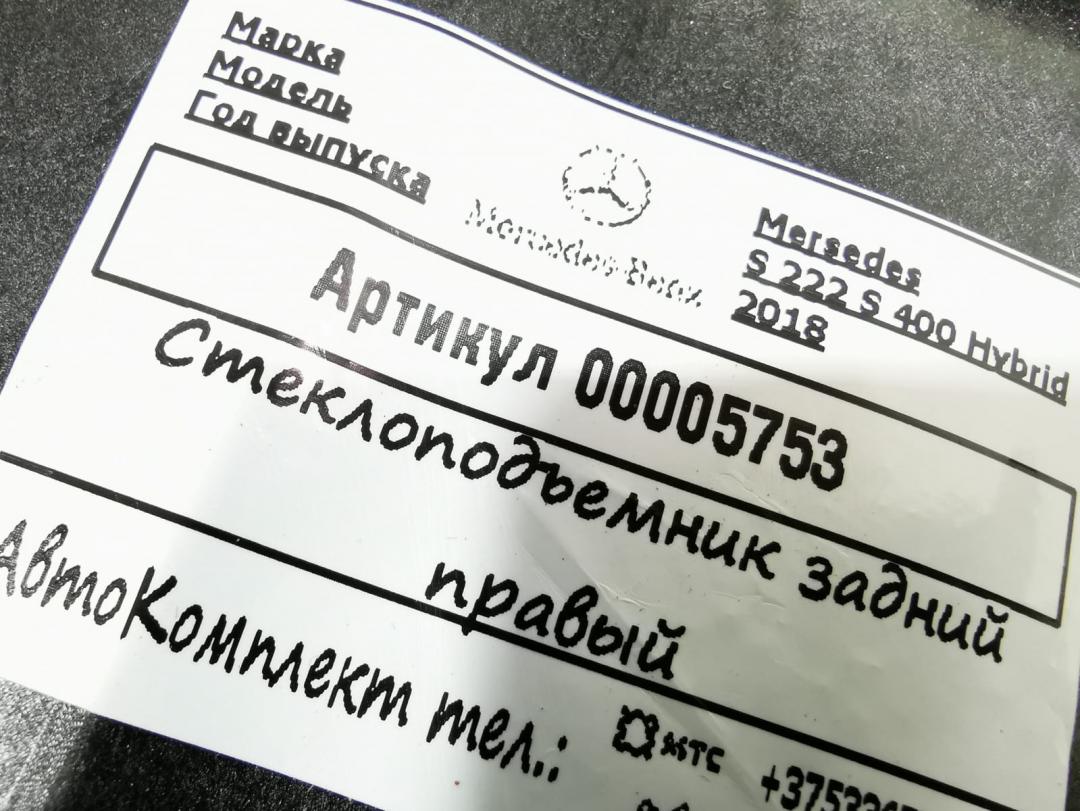 Марка
Модель
Год выпуска
Mercedes-Benz
Mersedes
S 222 S 400 Hybrid
2018
Артикул 00005753
Стеклоподъемник задний
правый
АвтоКомплект тел.:
мтс